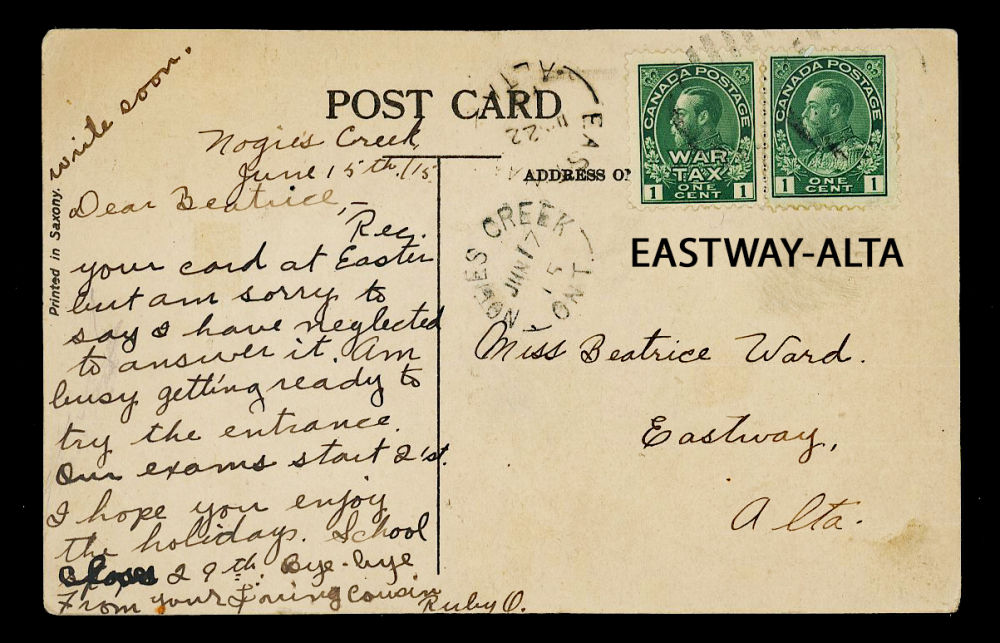 write soon.
Printed in Saxony.
POST CARD
Nogie's Creek,
June 15th/15
Dear Beatrice,-
Rec.
your card at Easter
but am sorry to
say I have neglected
to answer it. Am
busy getting ready to
try the entrance.
Our exams start 21st.
I hope you enjoy
the holidays. School
closes 29th. Bye-bye
From your Loving cousin
Ruby O.
ALTA
22
EAS
ADDRESS O
CREEK
JUN 17
15
ONT
CANADA POSTAGE
WAR
TAX
1 ONE 1
CENT
CANADA POSTAGE
1 ONE 1
CENT
EASTWAY-ALTA
Miss Beatrice Ward.
Eastway,
Alta.